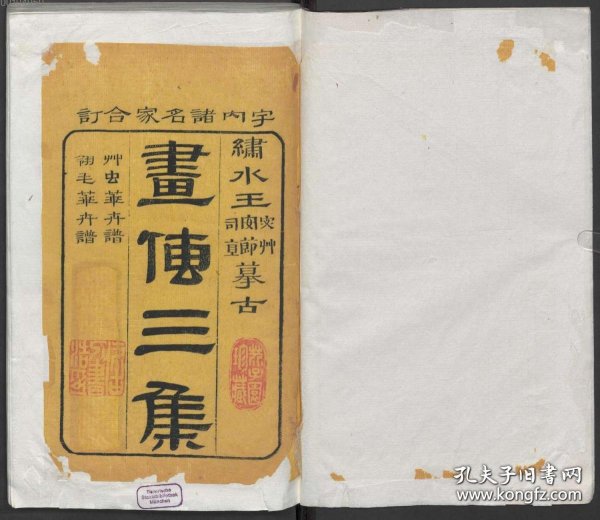 宇內諸名家合訂
繡水王
宓艸
安節
司直
摹古
畫傳三集
艸虫華卉譜
翎毛華卉譜
芥子園珍藏
Bayerische
Staatsbibliothek
München
孔夫子旧书网
www.kongfz.com